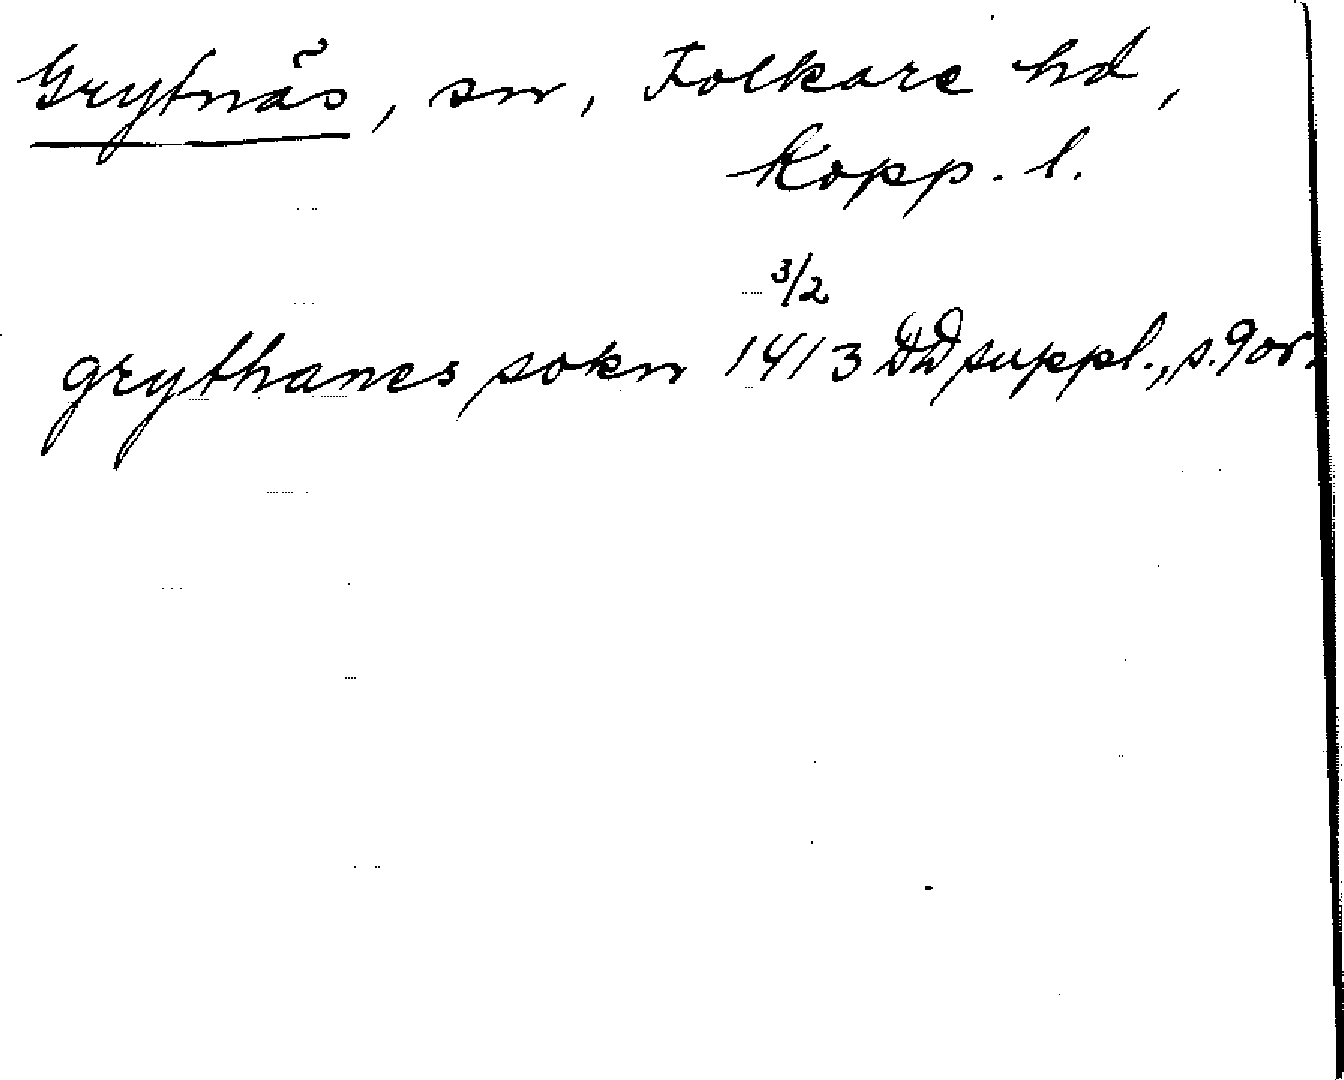 Grytnäs, sn, Folkare hd,
Kopp. l.
3/2
grythanes sokn 1413 DD suppl., s. 9 or.